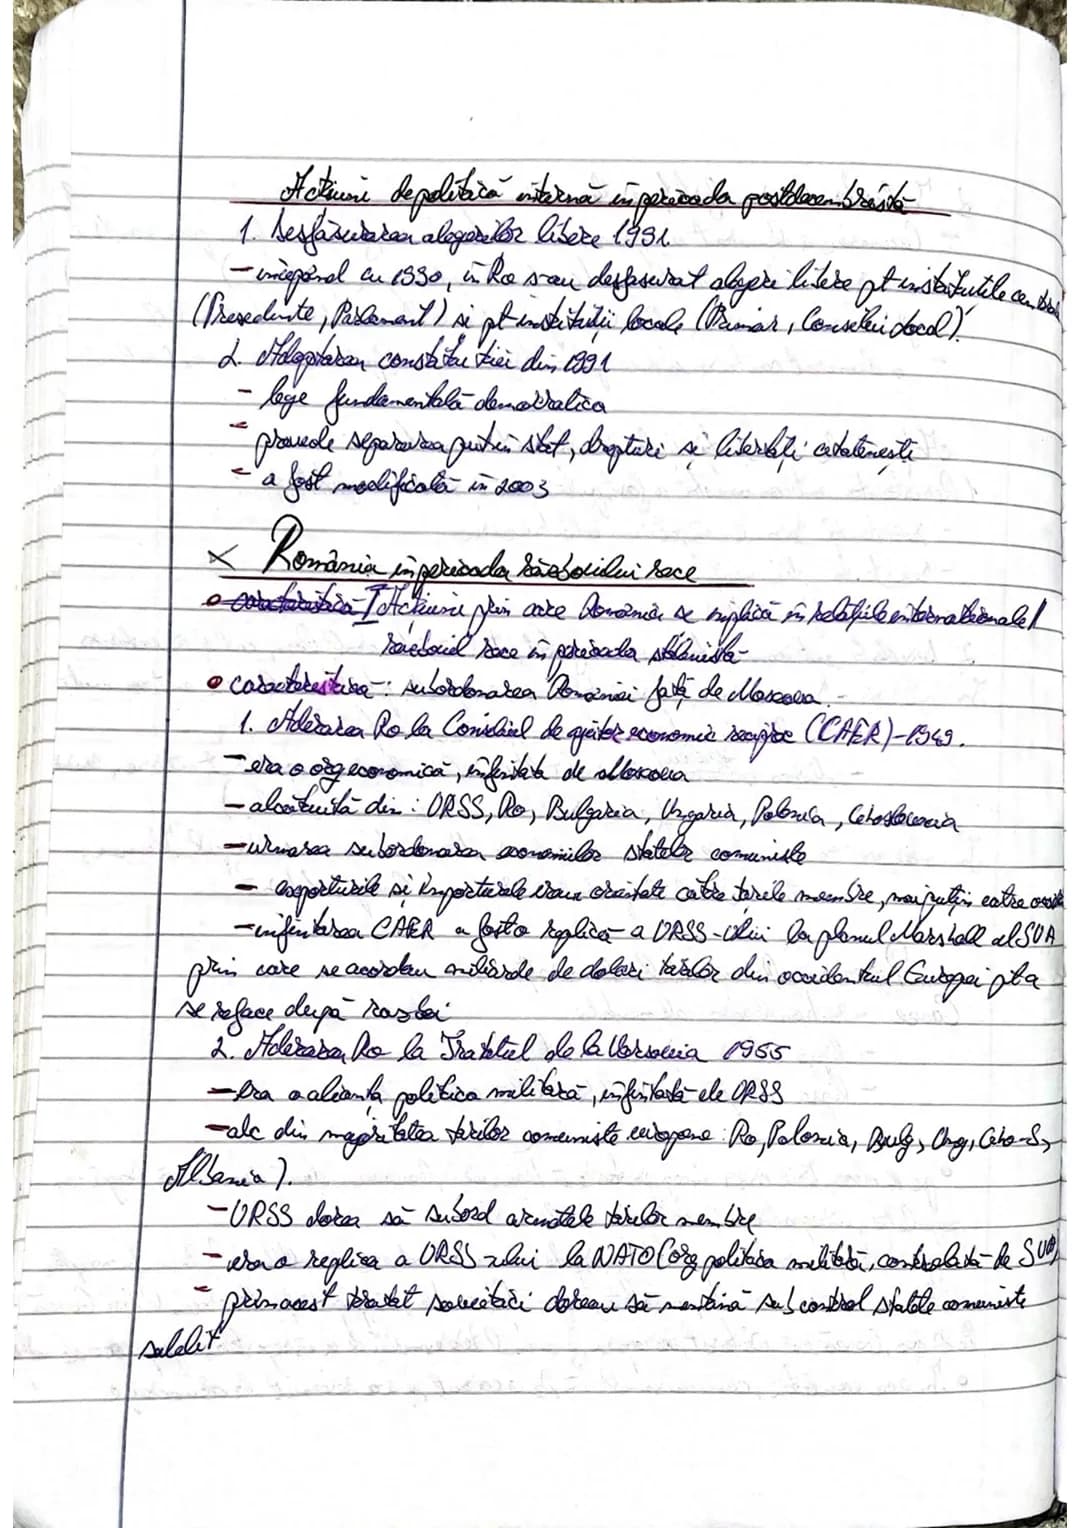 Acțiuni de politică internă în perioada postdecembristă
1. Desfășurarea alegerilor libere 1991
- începând cu 1990, în Ro s-au desfasurat alegeri libere pt institutiile centrale
(Presedinte, Parlament) si pt instituții locale (Primar, Consiliu local).
2. Adoptarea constitutiei din 1991
- lege fundamentală democratica
- prevede separarea puterii în stat, drepturi si libertăți cetatenesti
- a fost modificată in 2003
X România în perioada războiului rece
• caracteristica I Actiuni prin care România se implică in relațiile internationale /
razboiul rece in perioada stalinistă
• caracteristica: subordonarea României fată de Moscova
1. Aderarea Ro la Consiliul de ajutor economic reciproc (CAER) - 1949.
- era o org economică, infiintata de Moscova
- alcătuită din: URSS, Ro, Bulgaria, Ungaria, Polonia, Cehoslovacia
- urmarea subordonarea economiilor statelor comuniste
- exporturile si importurile erau orientate catre tarile membre, mai putin catre
- infiintarea CAER a fost o replică a URSS-ului la planul Marshall al SUA
prin care se acordau miliarde de dolari tarilor din occidentul Europei pt a
se reface după razboi
2. Aderarea Ro la Tratatul de la Varsovia 1955
- Era o alianta politica militară, infiintată de URSS
- alc din majoritatea tarilor comuniste europene: Ro, Polonia, Bulg, Ung, Ceho-S,
Albania).
- URSS dorea să subord armatele tarilor membre
- era o replica a URSS-ului la NATO (org politica militară, controlată de SUA)
- prin acest tratat sovieticii doreau să mentină sub control statele comuniste
satelit